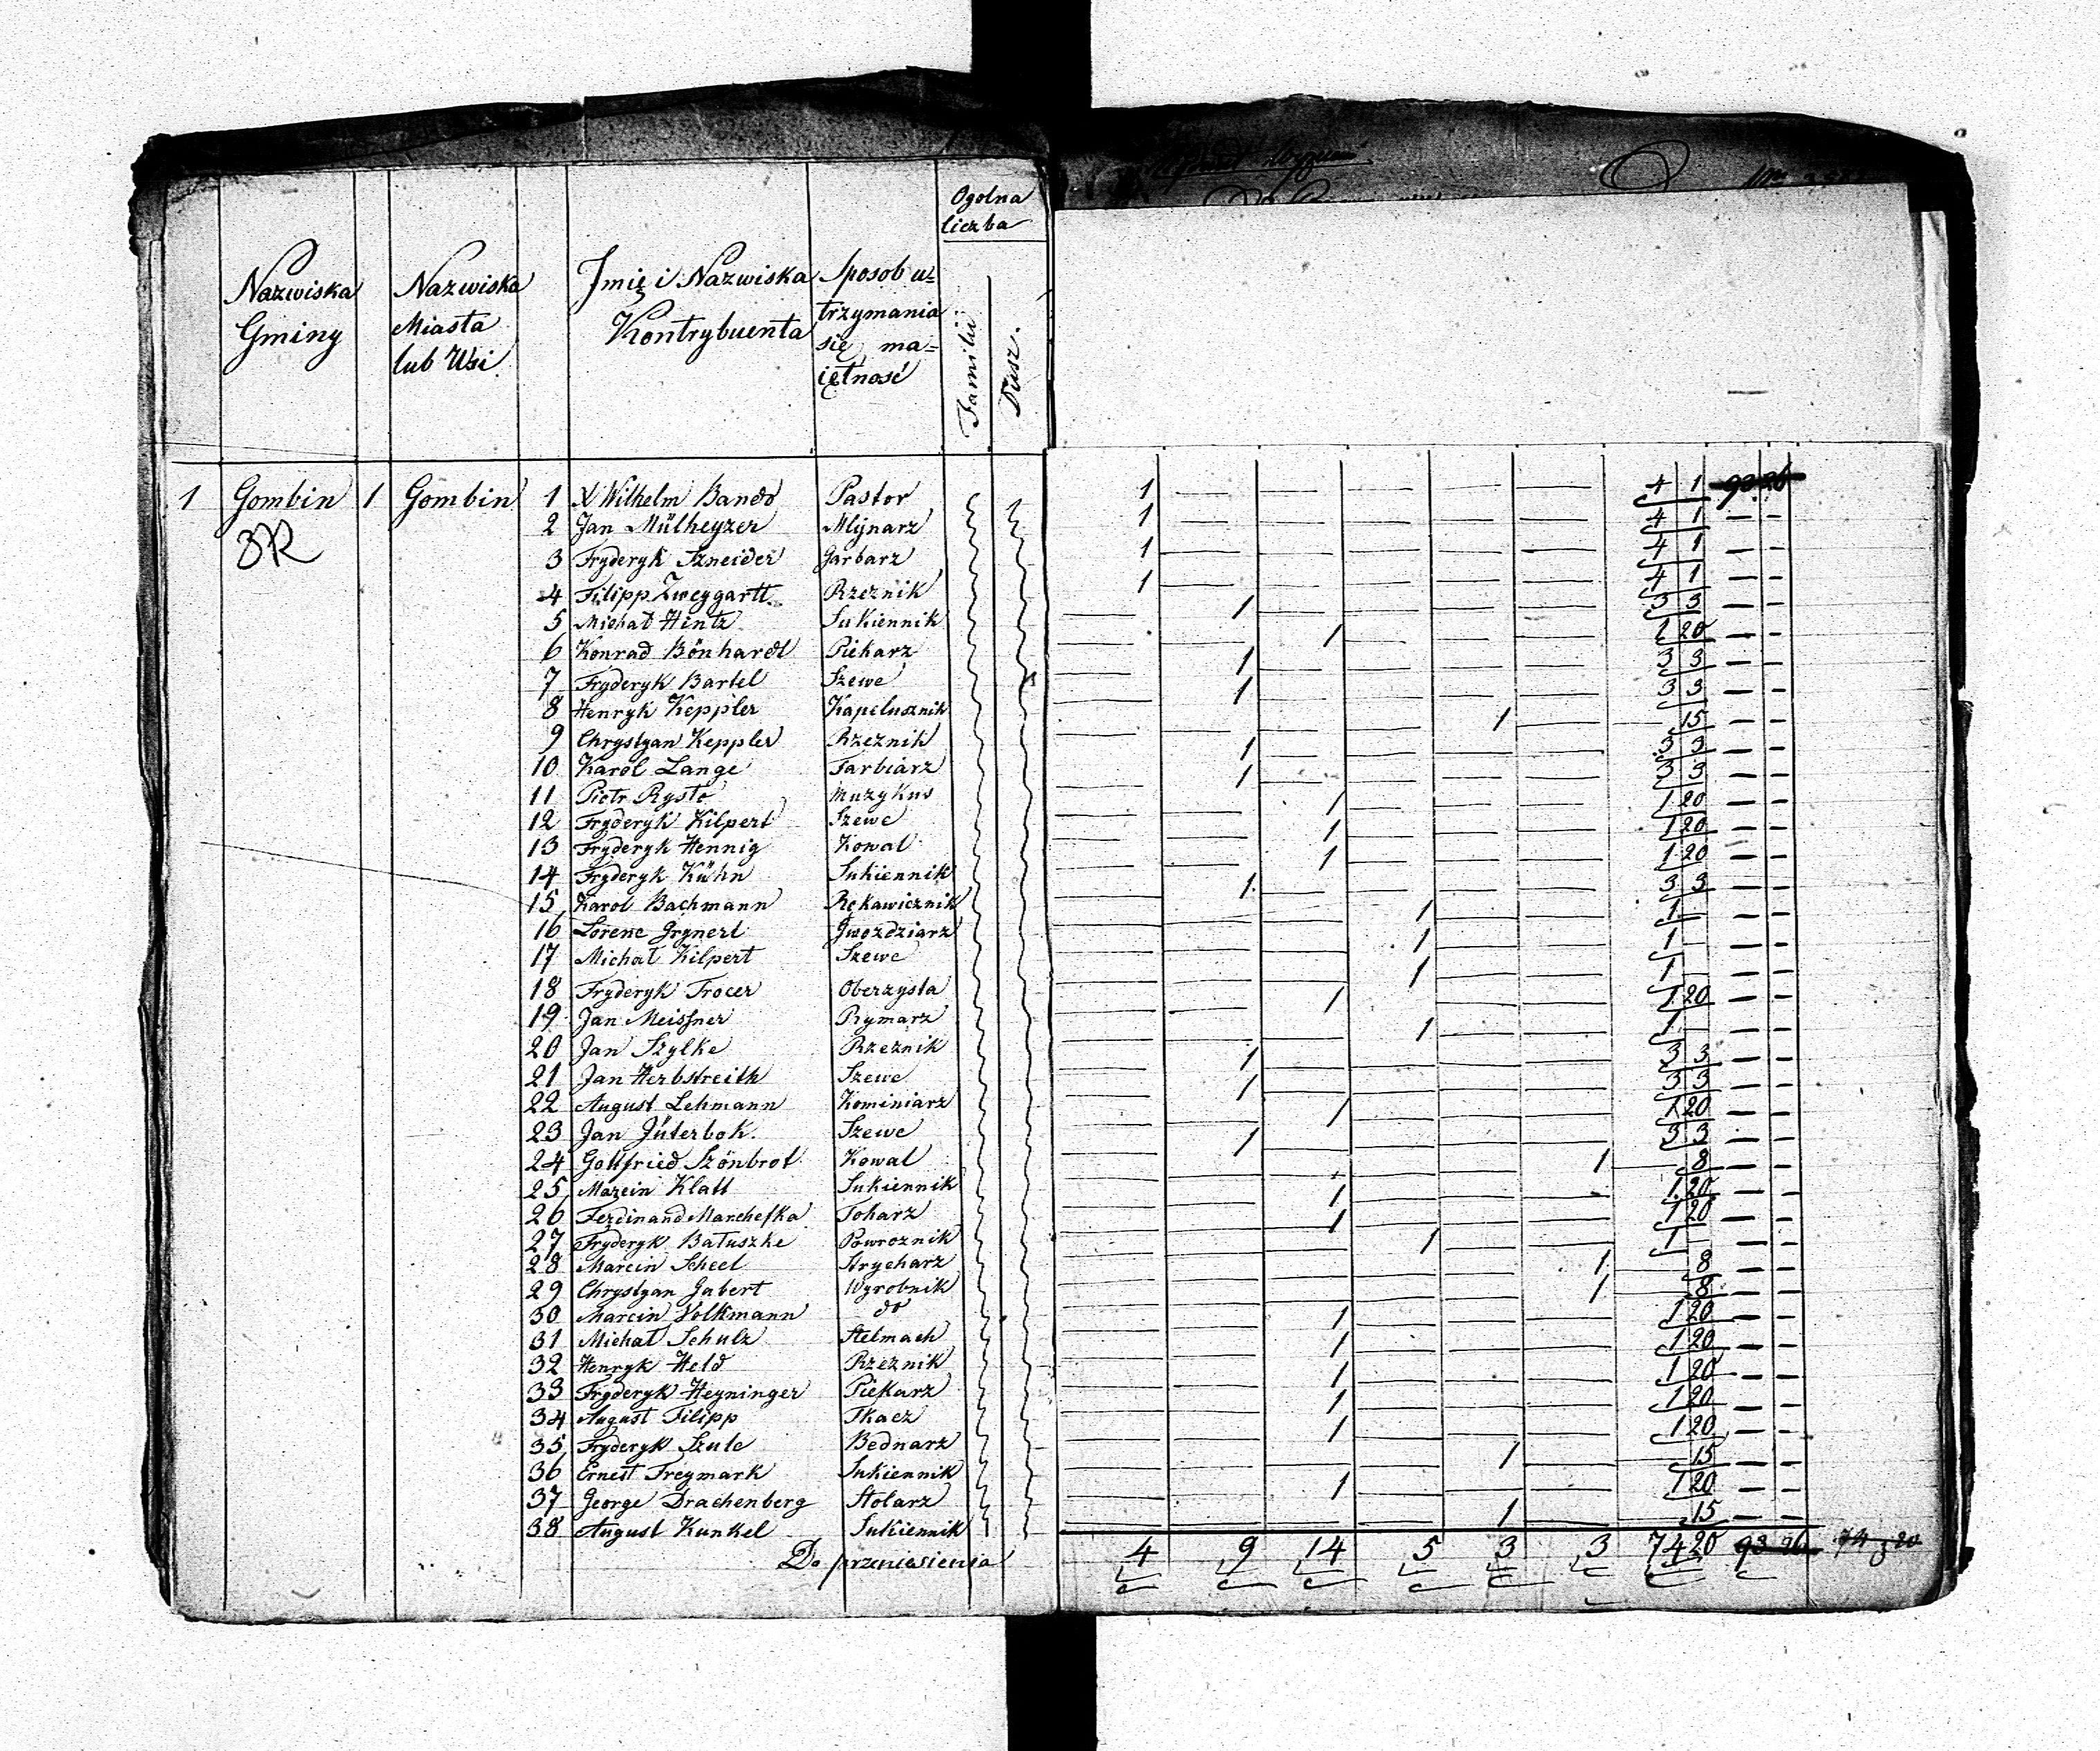 Ogolna
liczba
Nazwiska
Gminy
Nazwiska
Miasta
lub Wsi
Jmię i Nazwiska
Kontrybuenta
Sposob u=
trzymania
się ma=
iętność
Familii
Dusz.
1 Gombin 1 Gombin 1 X Wilhelm Bando Pastor 1 — — — — — 4 1
2 Jan Mülheyzer Młynarz 1 — — — — — 4 1 — —
3 Fryderyk Szneider Garbarz 1 — — — — — 4 1 — —
4 Filipp Zweygartt Rzeznik 1 — — — — — 4 1 — —
5 Michał Hintz Sukiennik — 1 — — — — 3 3 — —
6 Konrad Bönhardt Piekarz — — 1 — — — 1 20 — —
7 Fryderyk Bartel Szewc — 1 — — — — 3 3 — —
8 Henryk Keppler Kapelusznik — 1 — — — — 3 3 — —
9 Chrystyan Keppler Rzeznik — — — — 1 — — 15 — —
10 Karol Lange Farbiarz — 1 — — — — 3 3 — —
11 Piotr Rysto Muzykus — 1 — — — — 3 3 — —
12 Fryderyk Kilpert Szewc — — 1 — — — 1 20 — —
13 Fryderyk Hennig Kowal — — 1 — — — 1 20 — —
14 Fryderyk Kühn Sukiennik — — 1 — — — 1 20 — —
15 Karol Bachmann Rękawicznik — 1 — — — — 3 3 — —
16 Lorenc Grynert Gwozdziarz — — — 1 — — 1 — — —
17 Michał Kilpert Szewc — — — 1 — — 1 — — —
18 Fryderyk Trocer Oberzysta — — — 1 — — 1 — — —
19 Jan Meissner Rymarz — — 1 — — — 1 20 — —
20 Jan Szylke Rzeznik — — — 1 — — 1 — — —
21 Jan Herbstreith Szewc — 1 — — — — 3 3 — —
22 August Lehmann Kominiarz — 1 — — — — 3 3 — —
23 Jan Jüterbok. Szewc — — 1 — — — 1 20 — —
24 Gottfried Szönbrot Kowal — 1 — — — — 3 3 — —
25 Marcin Klatt Sukiennik — — — — — 1 — 8 — —
26 Ferdinand Marchefka Tokarz — — 1 — — — 1 20 — —
27 Fryderyk Batuszke Powroznik — — 1 — — — 1 20 — —
28 Marcin Scheel Strycharz — — — 1 — — 1 — — —
29 Chrystyan Gabert Wyrobnik — — — — — 1 — 8 — —
30 Marcin Volkmann do — — — — — 1 — 8 — —
31 Michał Schulz Stelmach — — 1 — — — 1 20 — —
32 Henryk Held Rzeznik — — 1 — — — 1 20 — —
33 Fryderyk Heyninger Piekarz — — 1 — — — 1 20 — —
34 August Filipp Tkacz — — 1 — — — 1 20 — —
35 Fryderyk Szulc Bednarz — — 1 — — — 1 20 — —
36 Ernest Freymark Sukiennik — — — — 1 — — 15 — —
37 George Drachenberg Stolarz — — 1 — — — 1 20 — —
38 August Kunkel Sukiennik — — — — 1 — — 15 — —
Do przeniesienia 4 9 14 5 3 3 74 20